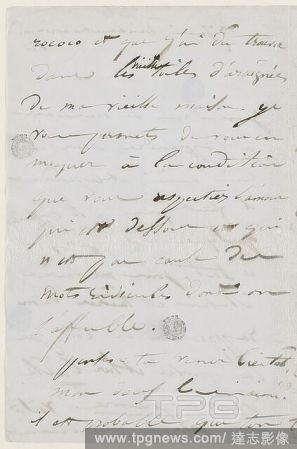 rococo et que j'ai du trouver
dans les vieilles toiles d'araignées
de ma vieille maison. je
vous permets de vous en
moquer à la condition
que vous respectiez l'amour
qui est dessous et qui
n'est pas cause des
mots ridicules dont on
l'affuble.
puisses-tu venir bientôt
mon doux
il est probable que ton
TPG
www.tpgnews.com / 達志影像